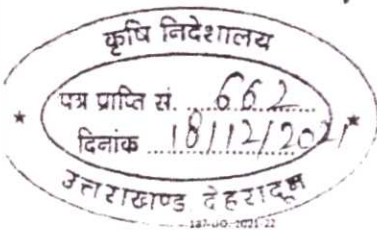 कृषि निदेशालय
पत्र प्राप्ति सं. 662
दिनांक 18/12/2021
उत्तराखण्ड देहरादून